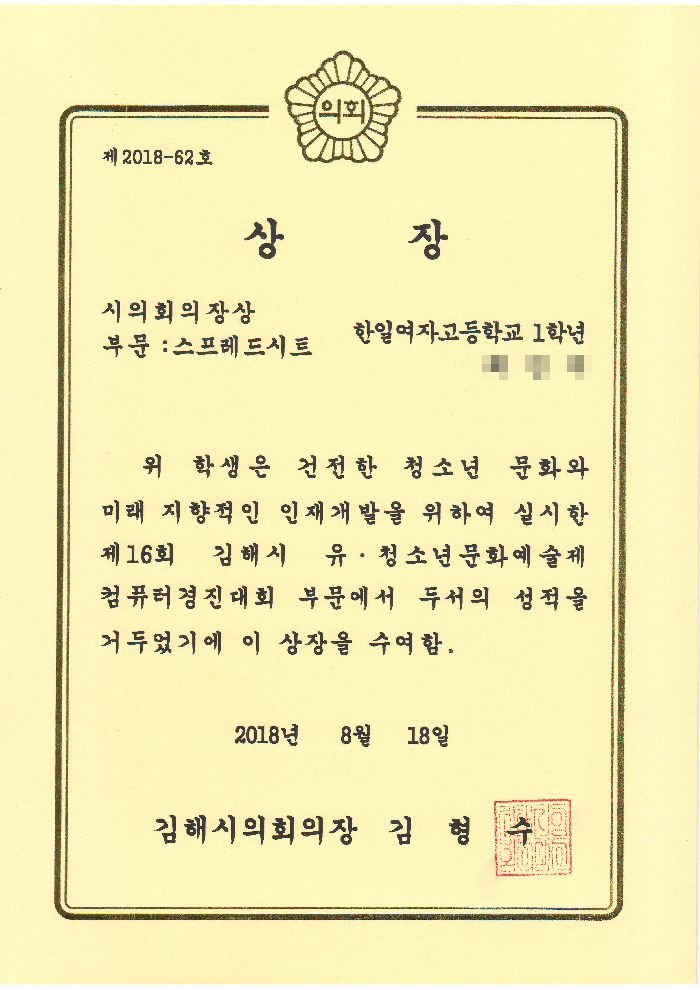 의회
제2018-62호
상 장
시의회의장상
부문 :스프레드시트
한일여자고등학교 1학년
위 학생은 건전한 청소년 문화와
미래 지향적인 인재개발을 위하여 실시한
제16회 김해시 유·청소년문화예술제
컴퓨터경진대회 부문에서 두서의 성적을
거두었기에 이 상장을 수여함.
2018년 8월 18일
김해시의회의장 김 형 수